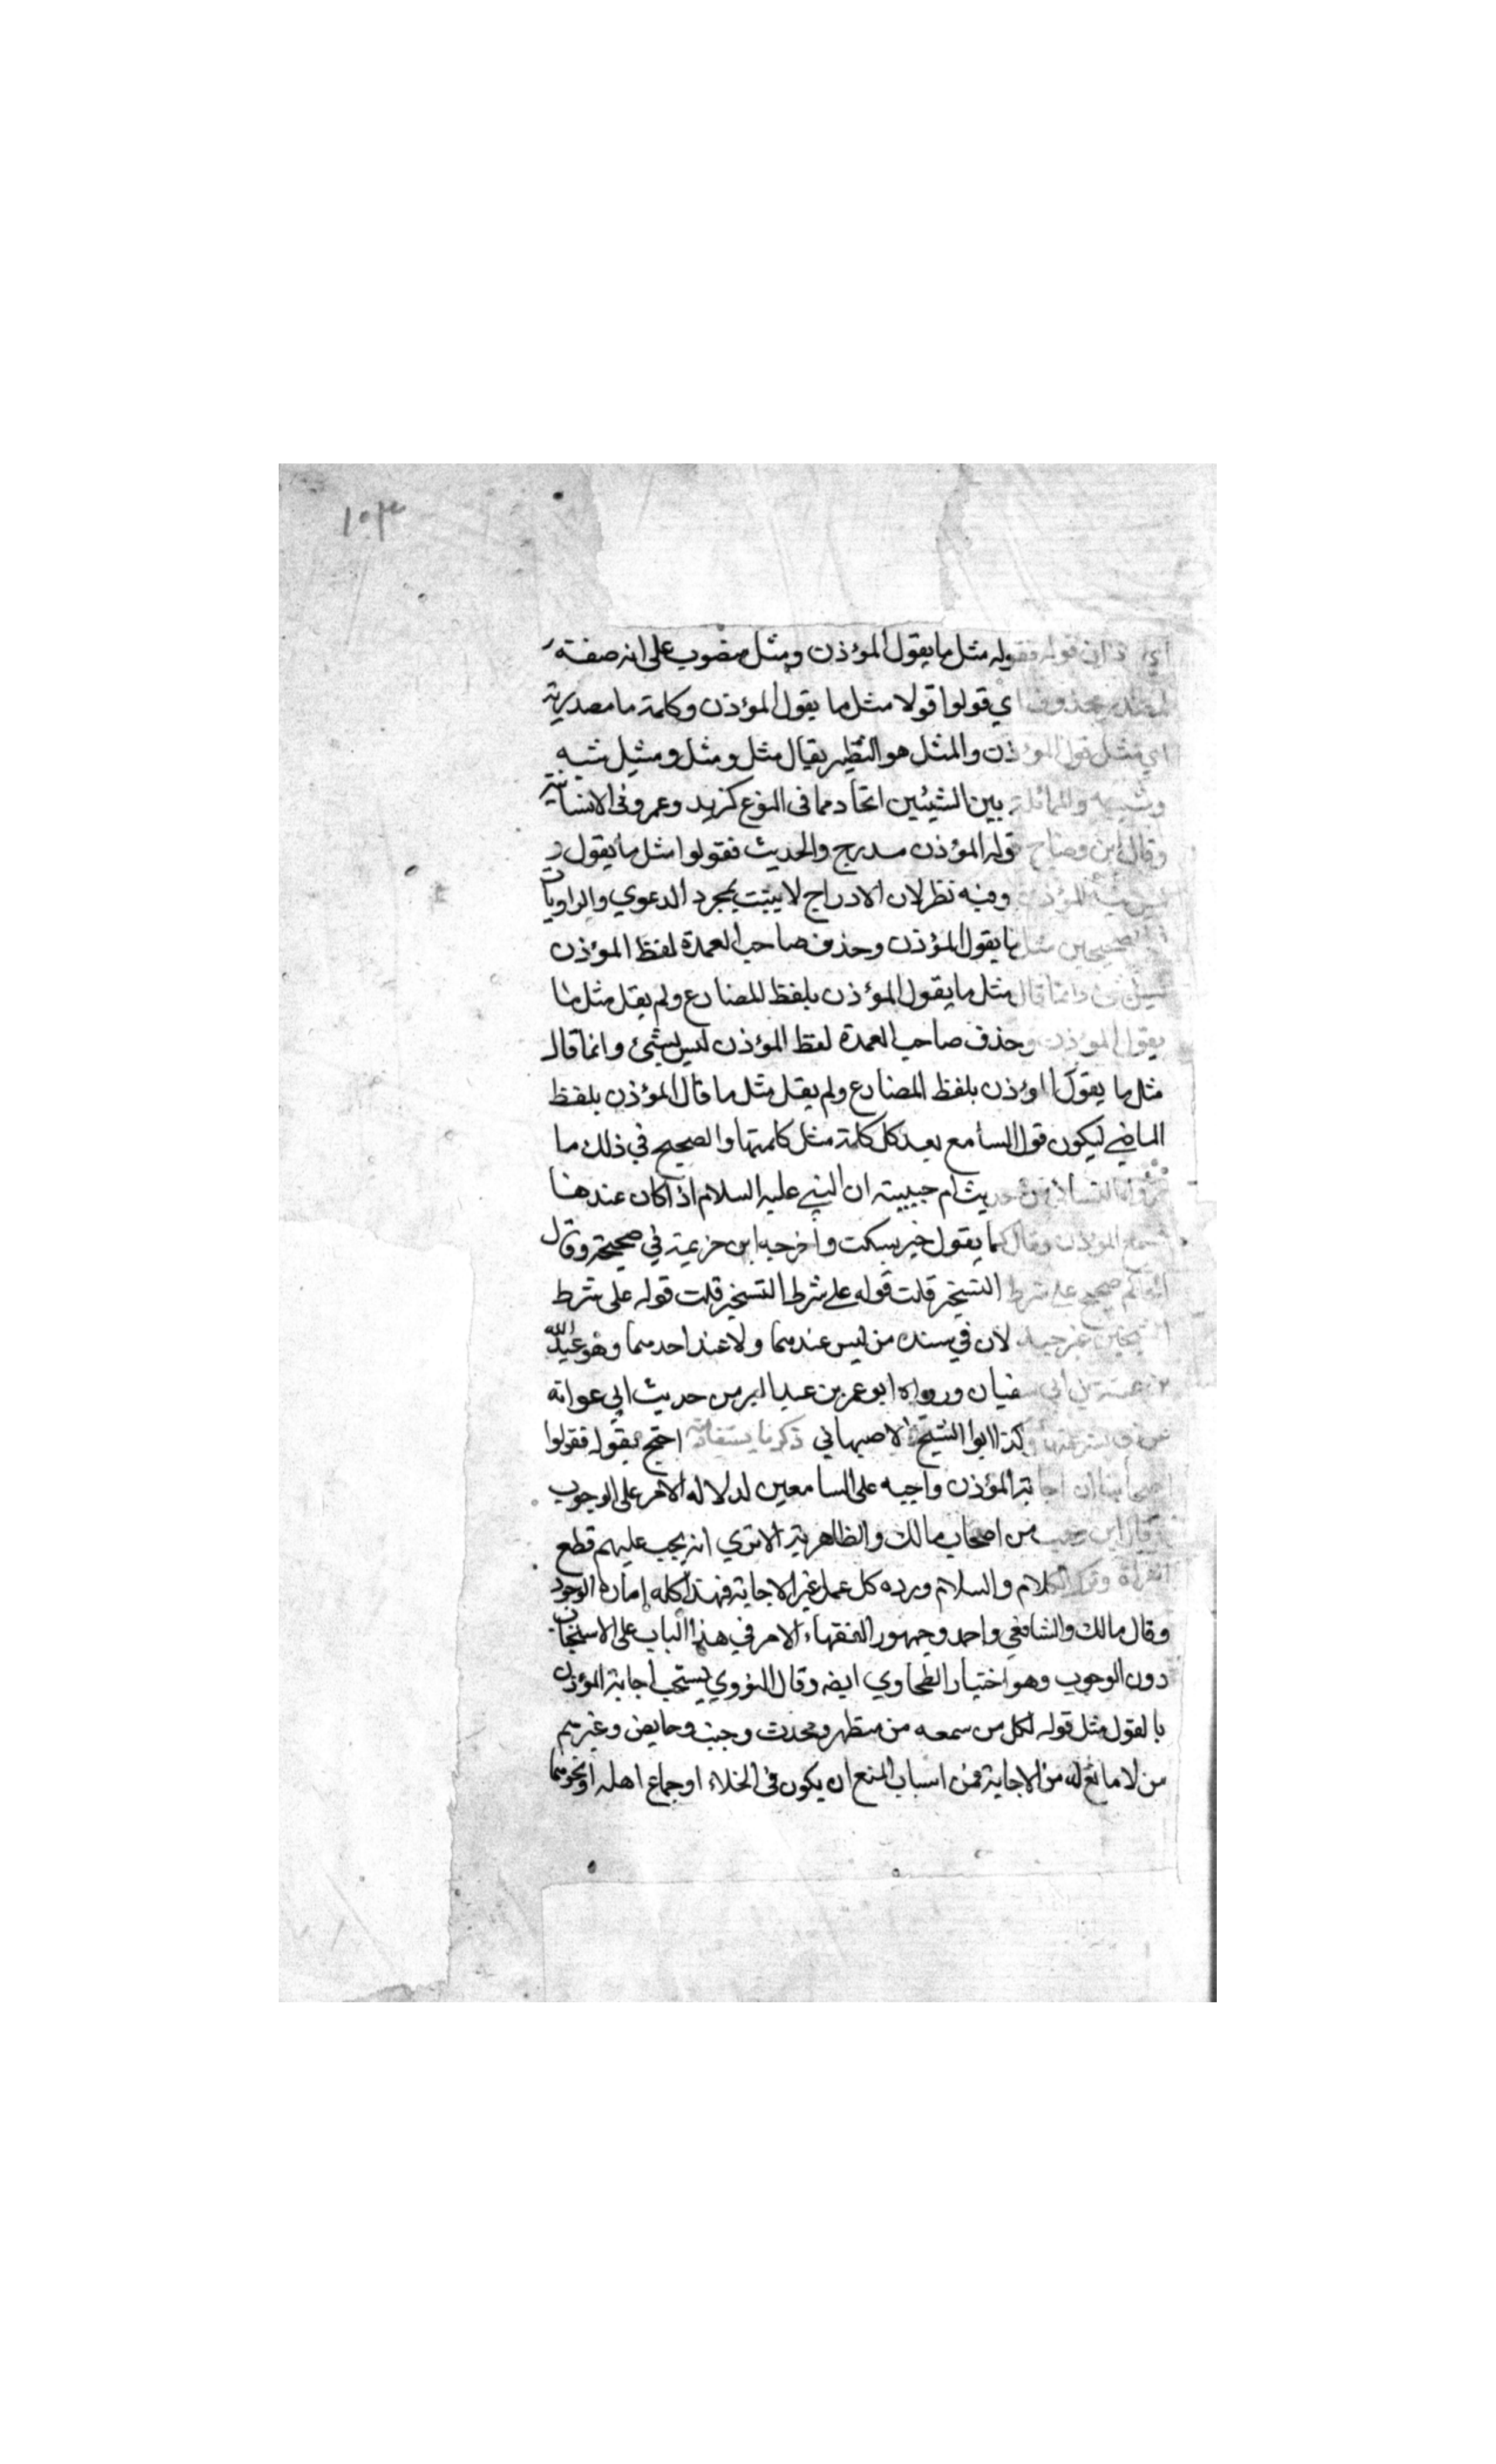 ١٠٣
اي اذان قوله فقوله مثل ما يقول المؤذن ومثل منصوب على انه صفته
لمصدر محذوف اي قولوا قولا مثل ما يقول المؤذن وكلمة ما مصدرية
اي مثل قول المؤذن والمثل هو النظير يقال مثل ومثل ومثيل شبه
وشبيه والمماثلة بين الشيئين اتحادهما فى النوع كزيد وعمرو فى الانسانية
وقال ابن وضاح قوله المؤذن مدرج والحديث فقولوا مثل ما يقول و
ليس فيه المؤذن وفيه نظر لان الادراج لا يثبت بمجرد الدعوي والراويات
الصحيحين مثل ما يقول المؤذن وحذف صاحب العمدة لفظ المؤذن
ليس بشئ وانما قال مثل ما يقول المؤذن بلفظ المضارع ولم يقل مثل ما
يقول المؤذن وحذف صاحب العمدة لفظ المؤذن ليس بشئ وانما قال
مثل ما يقول المؤذن بلفظ المضارع ولم يقل مثل ما قال المؤذن بلفظ
الماضي ليكون قول السامع بعد كل كلمة مثل كلمتها والصحيح في ذلك ما
النسائي من حديث ام حبيبته ان النبي عليه السلام اذا كان عندها
المؤذن وقال كما يقول خير يسكت وأخرجه ابن خزيمة في صحيحه وقال
الحاكم صحيح على شرط الشيخين قلت قوله على شرط الشيخين قلت قوله على شرط
الشيخين غير جيد لان في سنده من ليس عندهما ولا عند احدهما وهو عبد الله
بن عتبة بن ابي سفيان ورواه ابو عمر بن عبد البر من حديث ابي عوانه
وكذا ابوا الشيخ الاصبهاني ذكر ما يستفاد منه احتج بقوله فقولوا
اصحابنا ان اجابة المؤذن واجبه على السامعين لدلاله الامر على الوجوب
وقال ابن وهب من اصحاب مالك والظاهرية الا تري انه يجب عليهم قطع
القراة وترك الكلام والسلام ورده كل عمل غير الاجابة فهذا كله امارة الوجوب
وقال مالك والشافعي واحمد وجمهور الفقهاء الامر في هذا الباب على الاستحباب
دون الوجوب وهو اختيار الطحاوي ايضه وقال النووي يستحب اجابة المؤذن
بالقول مثل قوله لكل من سمعه من متطهر ومحدث وجنب وحايض وغيرهم
من لا مانع له من الاجابة فمن اسباب المنع ان يكون فى الخلاء او جماع اهله او نحوهما